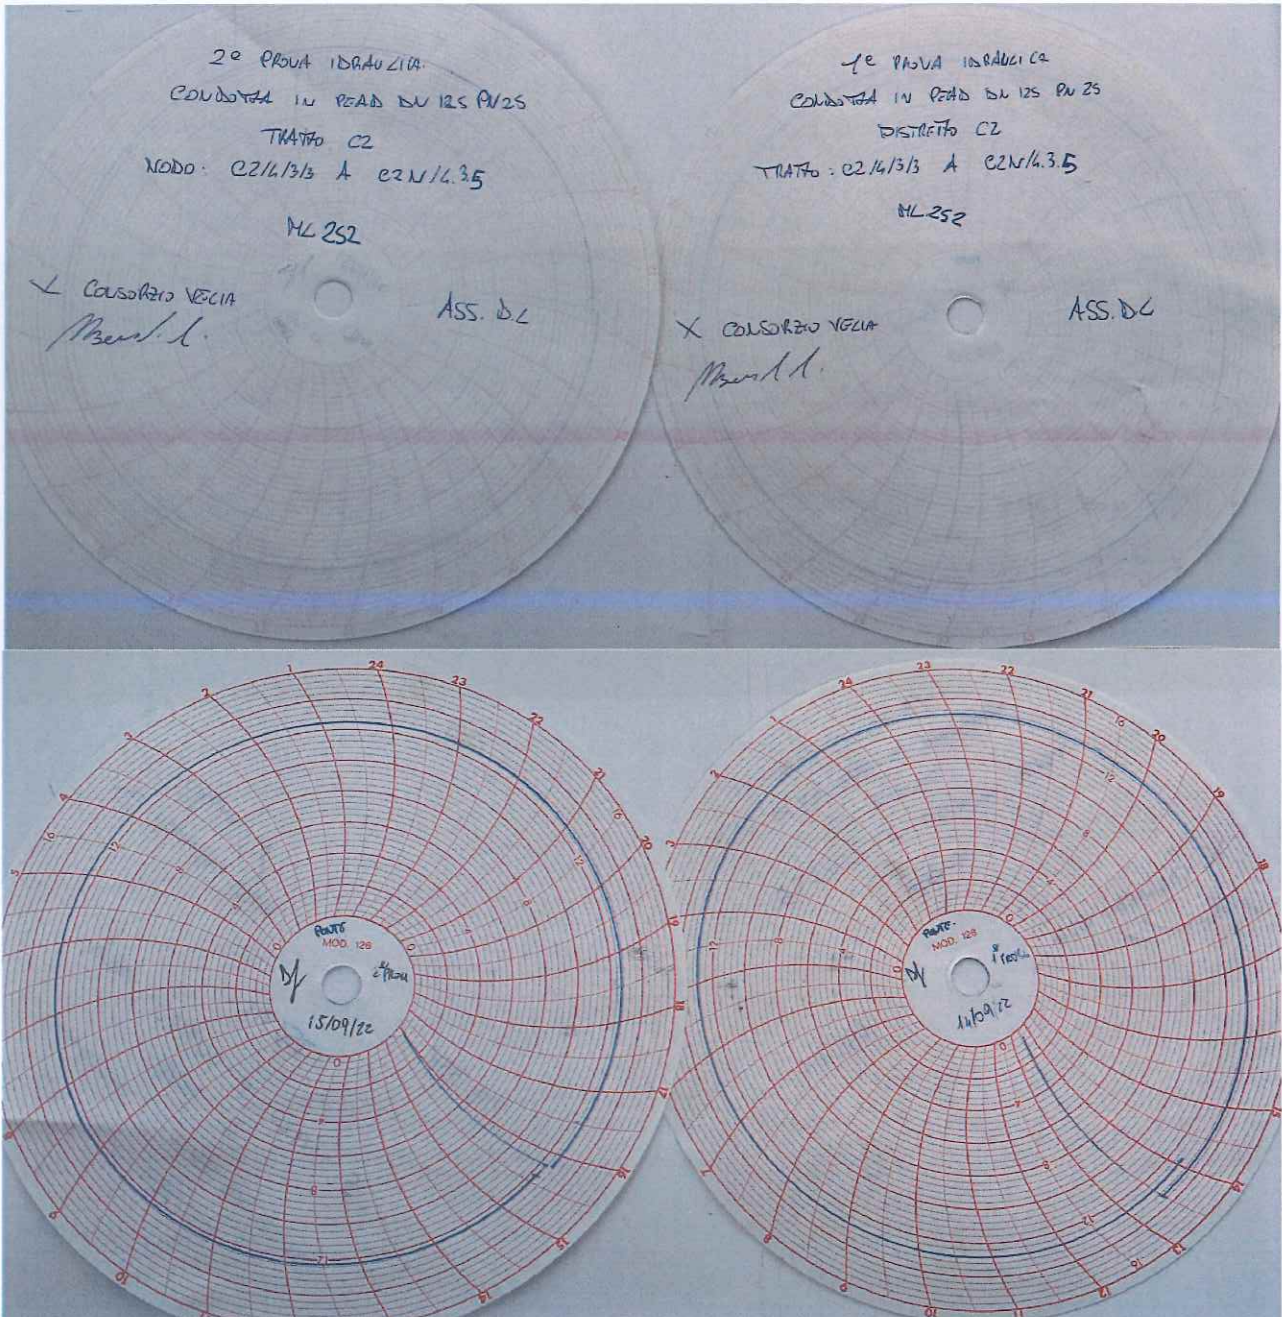 2ª PROVA IDRAULICA
CONDOTTA IN PEAD DN 125 PN25
TRATTO C2
NODO: C2/4/3/3 A C2N/4.3.5
ML 252
CONSORZIO VELIA
ASS. D.L
1ª PROVA IDRAULICA
CONDOTTA IN PEAD DN 125 PN 25
DISTRETTO C2
TRATTO: C2/4/3/3 A C2N/4.3.5
ML 252
X CONSORZIO VELIA
ASS. DL
1 24 23 22 21 20 19 18 17 16 15 14 10 9 5 4 3 2
16 12 8 4 0
PONTE
MOD. 126
2ª PROVA
15/09/22
24 23 22 21 20 19 18 15 14 13 12 11 10 9 8 7 3 2 1
16 12 8 4 0
PONTE
MOD. 126
14/09/22